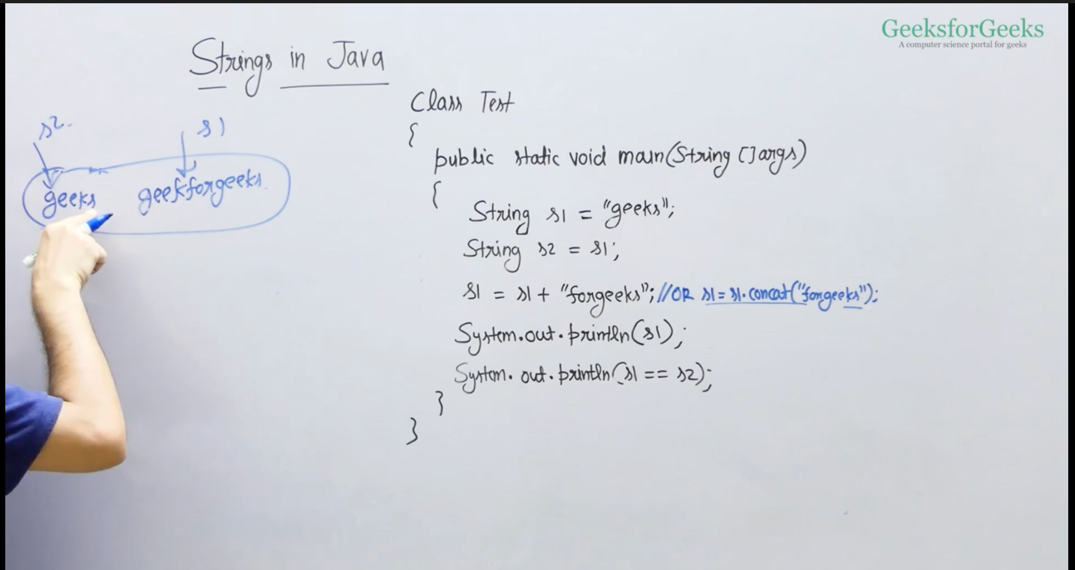 GeeksforGeeks
A computer science portal for geeks
Strings in Java
s2
s1
geeks geekforgeeks
Class Test
{
public static void main(String []args)
{
String s1 = "geeks";
String s2 = s1;
s1 = s1 + "forgeeks"; //OR s1 = s1.concat("forgeeks");
System.out.println(s1);
System.out.println(s1 == s2);
}
}